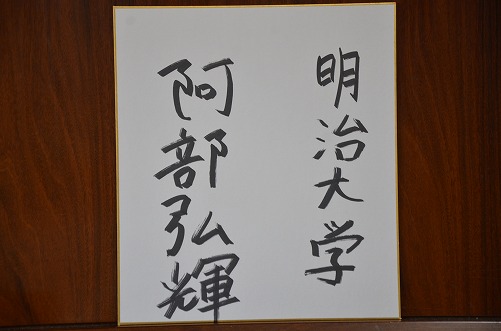 明治大学
阿部弘輝